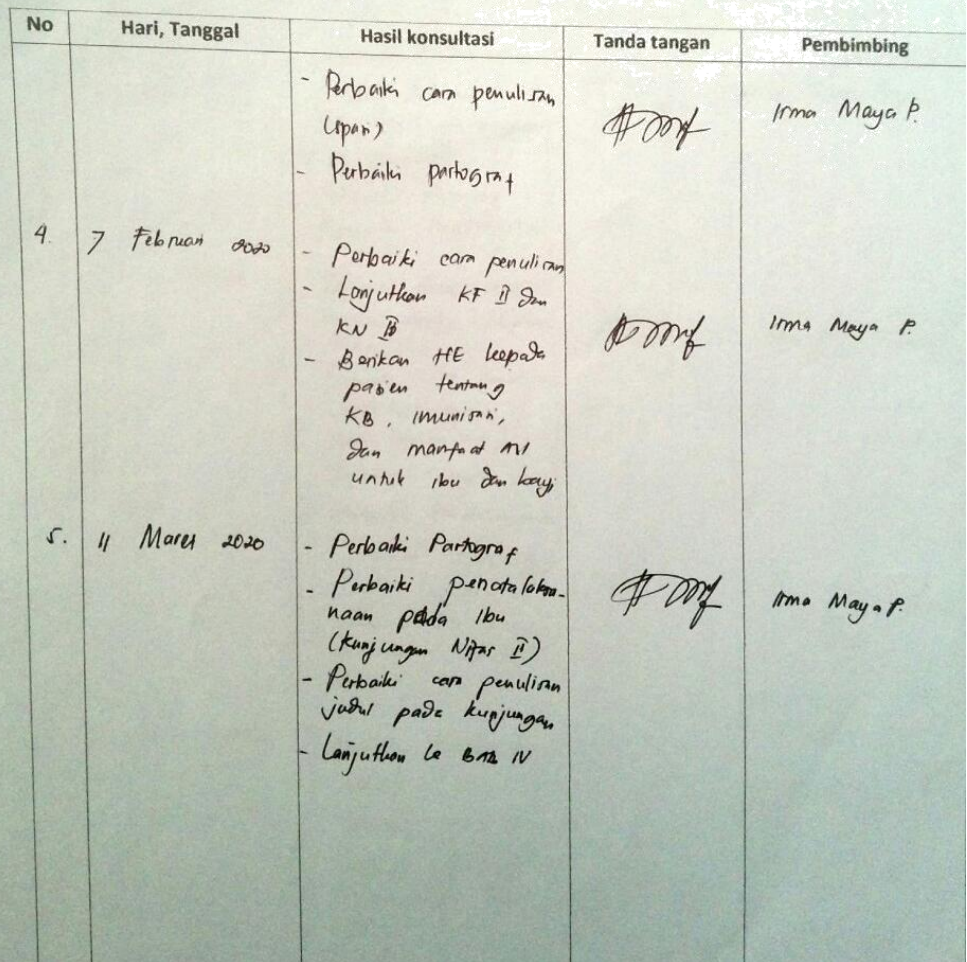 No Hari, Tanggal Hasil konsultasi Tanda tangan Pembimbing
- Perbaiki cara penulisan
(spasi)
- Perbaiki partograf
Irma Maya P.
4. 7 Februari 2020
- Perbaiki cara penulisan
- Lanjutkan KF II dan
KN II
- Berikan HE kepada
pasien tentang
KB, imunisasi,
dan manfaat ASI
untuk ibu dan bayi
Irma Maya P.
5. 11 Maret 2020
- Perbaiki Partograf
- Perbaiki penatalaksa-
naan pada Ibu
(Kunjungan Nifas II)
- Perbaiki cara penulisan
judul pada kunjungan
- Lanjutkan ke BAB IV
Irma Maya P.